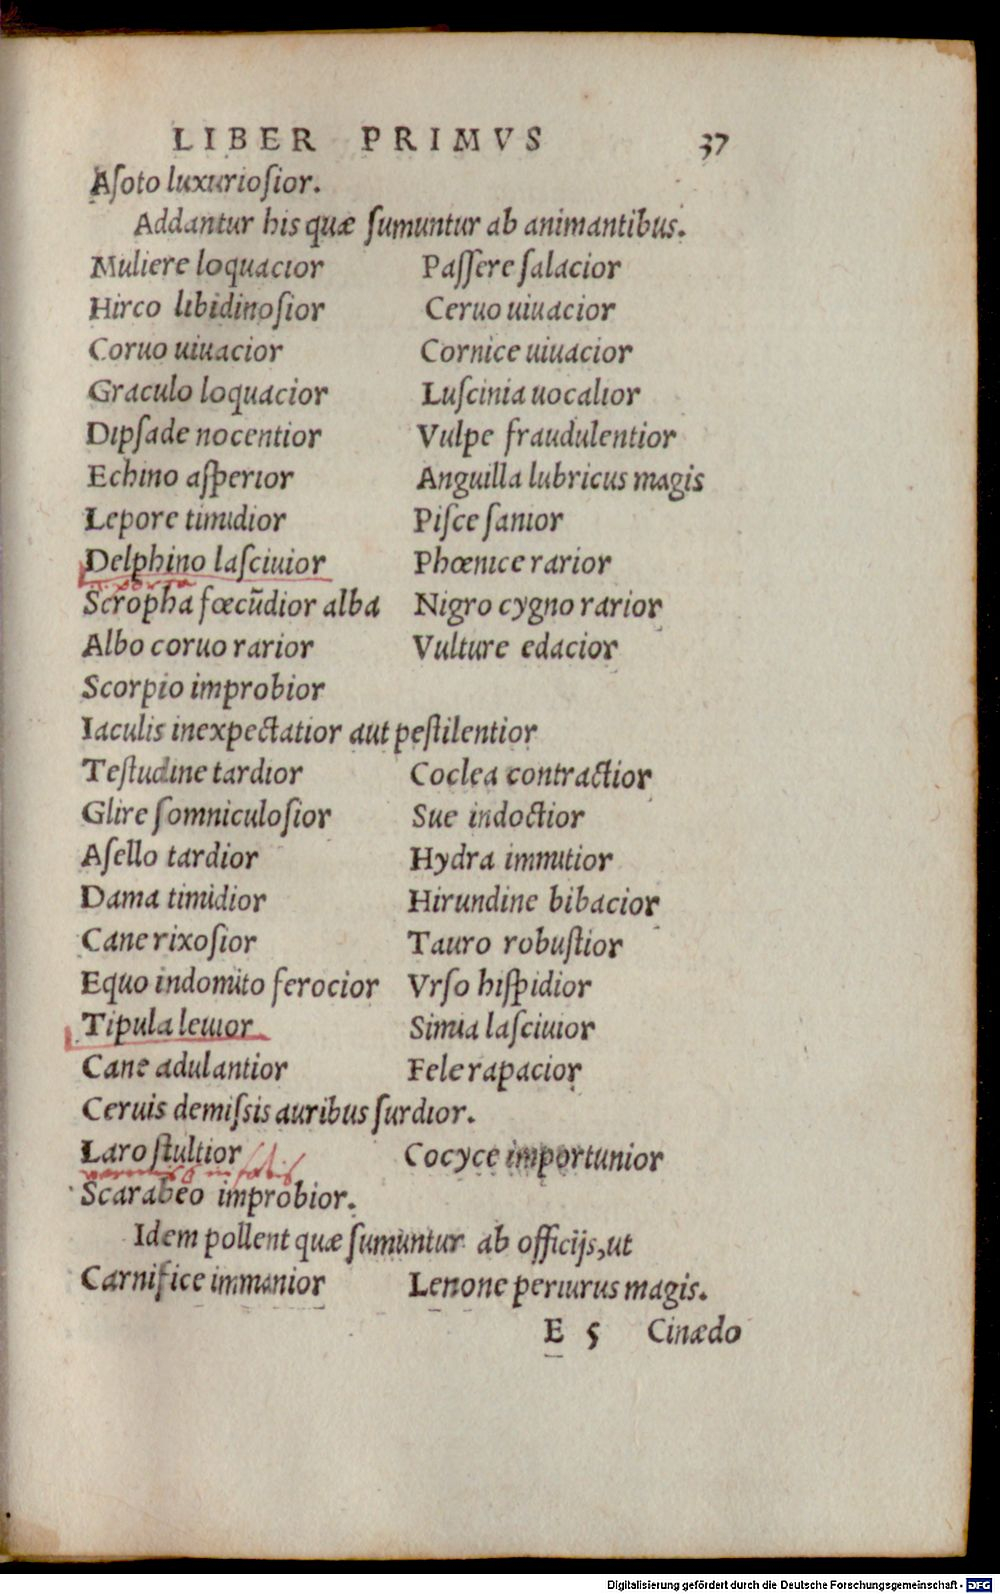 LIBER PRIMVS 37
Aſoto luxurioſior.
Addantur his quæ ſumuntur ab animantibus.
Muliere loquacior Paſſere ſalacior
Hirco libidinoſior Ceruo uiuacior
Coruo uiuacior Cornice uiuacior
Graculo loquacior Luſcinia uocalior
Dipſade nocentior Vulpe fraudulentior
Echino aſperior Anguilla lubricus magis
Lepore timidior Piſce ſanior
Delphino laſciuior Phœnice rarior
porca
Scropha fœcūdior alba Nigro cygno rarior
Albo coruo rarior Vulture edacior
Scorpio improbior
Iaculis inexpectatior aut peſtilentior
Teſtudine tardior Coclea contractior
Glire ſomniculoſior Sue indoctior
Aſello tardior Hydra immitior
Dama timidior Hirundine bibacior
Cane rixoſior Tauro robuſtior
Equo indomito ferocior Vrſo hiſpidior
Tipula leuior Simia laſciuior
Cane adulantior Fele rapacior
Ceruis demiſsis auribus ſurdior.
Laro ſtultior Cocyce importunior
Scarabeo improbior.
Idem pollent quæ ſumuntur ab officijs,ut
Carnifice immanior Lenone periurus magis.
E 5 Cinædo
Digitalisierung gefördert durch die Deutsche Forschungsgemeinschaft - DFG